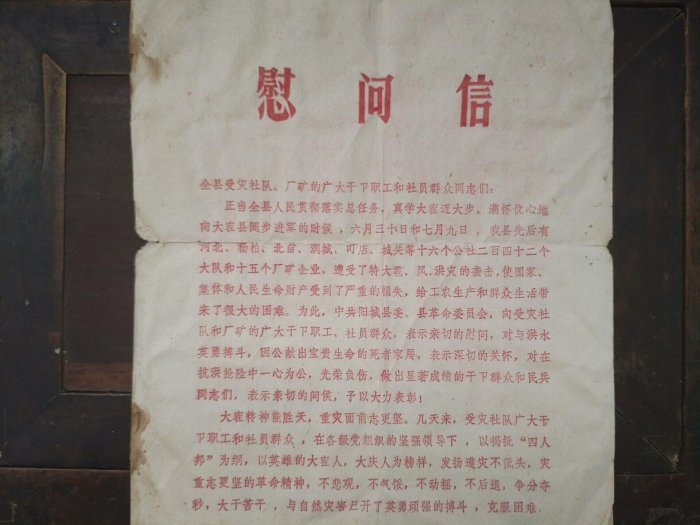 慰问信
全县受灾社队、厂矿的广大干卩职工和社员群众同志们：
正当全县人民贯彻落实总任务，真学大寨迈大步。满怀信心地
向大寨县阔步进军的时候，六月三十日和七月九日，我县先后有
河北、杨柏、北留、润城、町店、城关等十六个公社二百四十二个
大队和十五个厂矿企业，遭受了特大雹、风、洪灾的袭击，使国家、
集体和人民生命财产受到了严重的损失，给工农生产和群众生活带
来了很大的困难。为此，中共阳城县委、县革命委员会，向受灾社
队和厂矿的广大干卩职工、社员群众，表示亲切的慰问，对与洪水
英勇搏斗，因公献出宝贵生命的死者家属，表示深切的关怀，对在
抗洪抢险中一心为公，光荣负伤，做出显著成绩的干卩群众和民兵
同志们，表示亲切的问候，予以大力表彰！
大寨精神能胜天，重灾面前志更坚。几天来，受灾社队广大干
卩职工和社员群众，在各级党组织的坚强领导下，以揭批“四人
邦”为纲，以英雄的大寨人，大庆人为榜样，发扬遭灾不低头，灾
重志更坚的革命精神，不悲观，不气馁，不动摇，不后退，争分夺
秒，大干苦干，与自然灾害已开了英勇顽强的搏斗，克服困难，